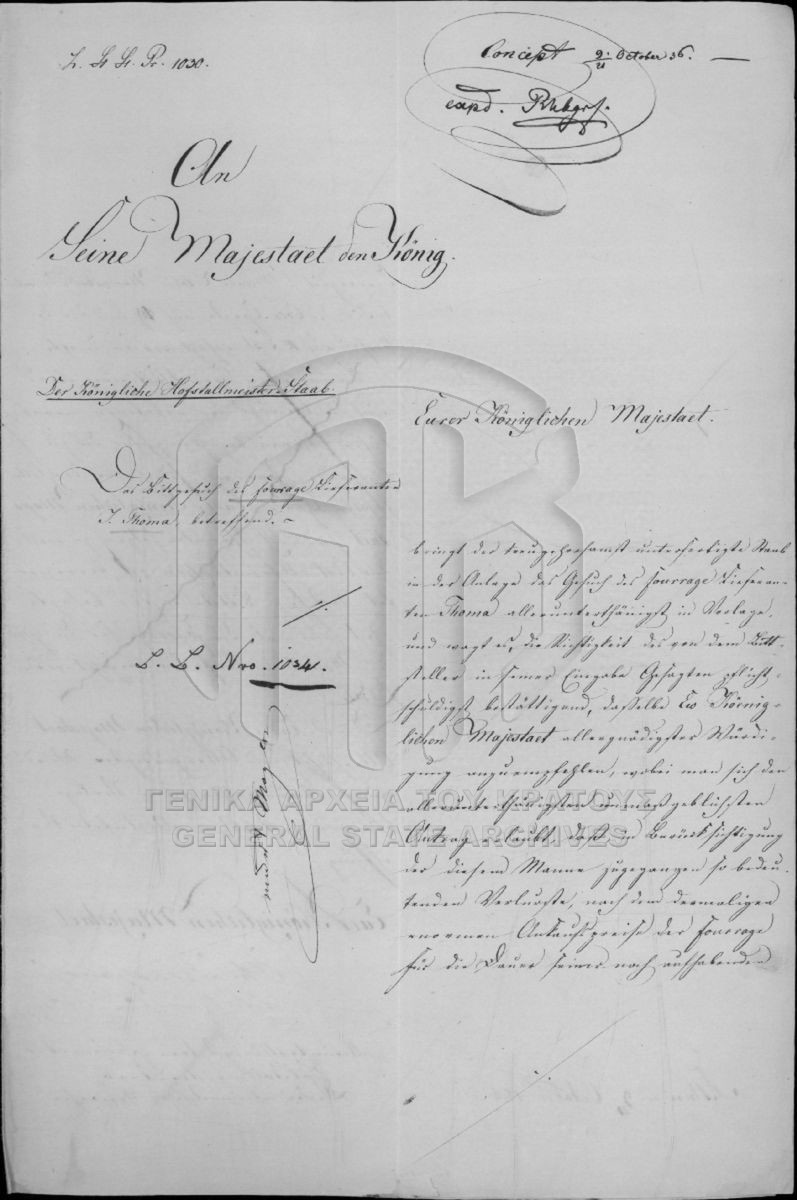 Concept 9/21 October 36.
expd.
An
Seine Majestaet den König.
Der Königliche Hofstallmeister-Staab.
Das Bittgesuch des fourrage Lieferanten
J. Thoma betreffend.
L. B. Nro. 1034.
Eurer Königlichen Majestaet.
bringt der treugehorsamst unterfertigte Staab
in der Anlage das Gesuch des fourrage Lieferan-
ten Thoma allerunterthänigst in Vorlage,
und wagt es, die Richtigkeit des von dem Bitt-
steller in seiner Eingabe Gesagten pflicht-
schuldigst bestättigend, dasselbe Eu Königlichen
Majestaet allergnädigster Würdi-
gung anzuempfehlen, wobei man sich den
allerunterthänigsten unmaßgeblichsten
Antrag erlaubt, daß in Berücksichtigung
der diesem Manne zugegangen so bedeu-
tenden Verluste, nach dem dermaligen
enormen Ankaufspreise der fourrage
für die Dauer seines noch aufhabenden
ΓΕΝΙΚΑ ΑΡΧΕΙΑ ΤΟΥ ΚΡΑΤΟΥΣ
GENERAL STATE ARCHIVES